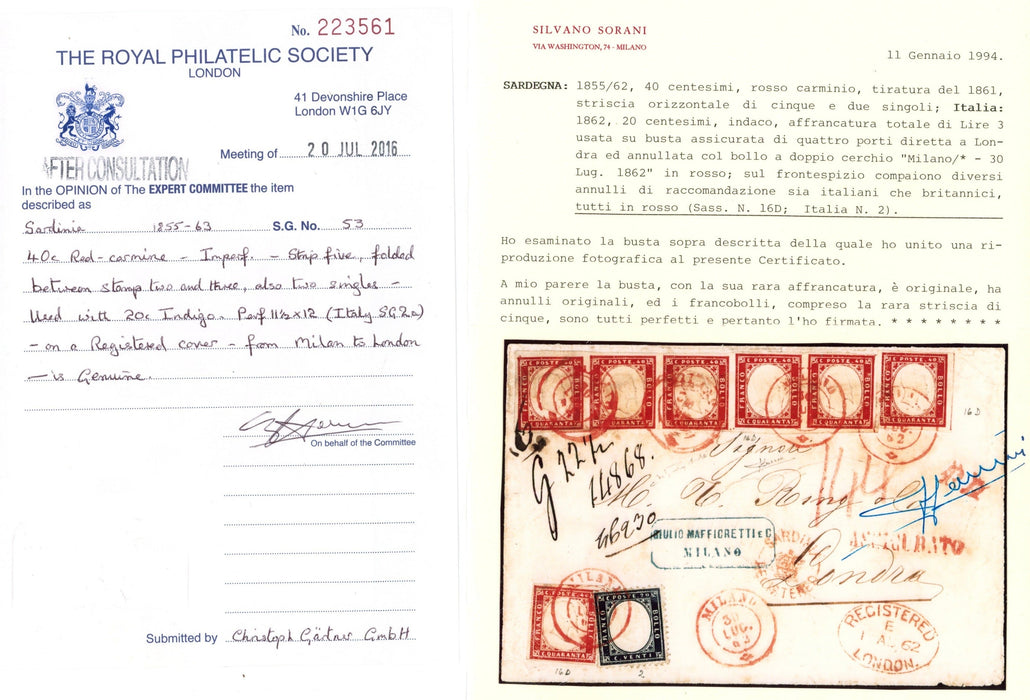 No. 223561
THE ROYAL PHILATELIC SOCIETY
LONDON
41 Devonshire Place
London W1G 6JY
Meeting of 20 JUL 2016
AFTER CONSULTATION
In the OPINION of The EXPERT COMMITTEE the item
described as
Sardinia 1855-63 S.G. No. 53
40c Red-carmine - Imperf. - Strip five, folded
between stamp two and three, also two singles -
Used with 20c Indigo. Perf 11½x12 (Italy SG2a)
- on a Registered cover - from Milan to London
- is Genuine.
On behalf of the Committee
Submitted by Christoph Gärtner GmbH
SILVANO SORANI
VIA WASHINGTON, 74 - MILANO
11 Gennaio 1994.
SARDEGNA: 1855/62, 40 centesimi, rosso carminio, tiratura del 1861,
striscia orizzontale di cinque e due singoli; Italia:
1862, 20 centesimi, indaco, affrancatura totale di Lire 3
usata su busta assicurata di quattro porti diretta a Lon-
dra ed annullata col bollo a doppio cerchio "Milano/* - 30
Lug. 1862" in rosso; sul frontespizio compaiono diversi
annulli di raccomandazione sia italiani che britannici,
tutti in rosso (Sass. N. 16D; Italia N. 2).
Ho esaminato la busta sopra descritta della quale ho unito una ri-
produzione fotografica al presente Certificato.
A mio parere la busta, con la sua rara affrancatura, è originale, ha
annulli originali, ed i francobolli, compreso la rara striscia di
cinque, sono tutti perfetti e pertanto l'ho firmata. * * * * * * * *
C. POSTE. 40 C. POSTE. 40 C. POSTE. 40 C. POSTE. 40 C. POSTE. 40 C. POSTE. 40
FRANCO BOLLO FRANCO BOLLO FRANCO BOLLO FRANCO BOLLO FRANCO BOLLO FRANCO BOLLO
C. QUARANTA C. QUARANTA C. QUARANTA C. QUARANTA C. QUARANTA C. QUARANTA
16D
16D
Signori
14898.
46230
GIULIO MAFFIORETTI e C
MILANO
ASSICURATO
Londra
MILANO
C. POSTE. 40 C. POSTE. 20
FRANCO BOLLO FRANCO BOLLO
C. QUARANTA C. VENTI
16D 2
MILANO
30
LUG.
62
REGISTERED
E
1 AU 62
LONDON.